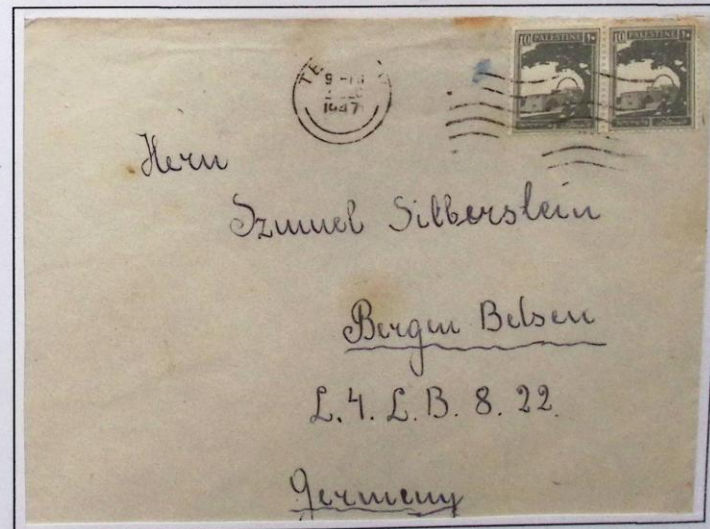 10 PALESTINE ١٠ 10 PALESTINE ١٠
1947
Hern
Szmuel Silberstein
Bergen Belsen
L. 4. L. B. 8. 22.
Germeny